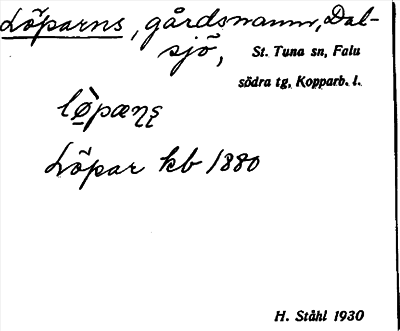 Löparns, gårdsnamn, Dal-
sjö, St. Tuna sn, Falu
södra tg, Kopparb. l.
lø̀pæṇṣ
Löpar kb 1880
H. Ståhl 1930